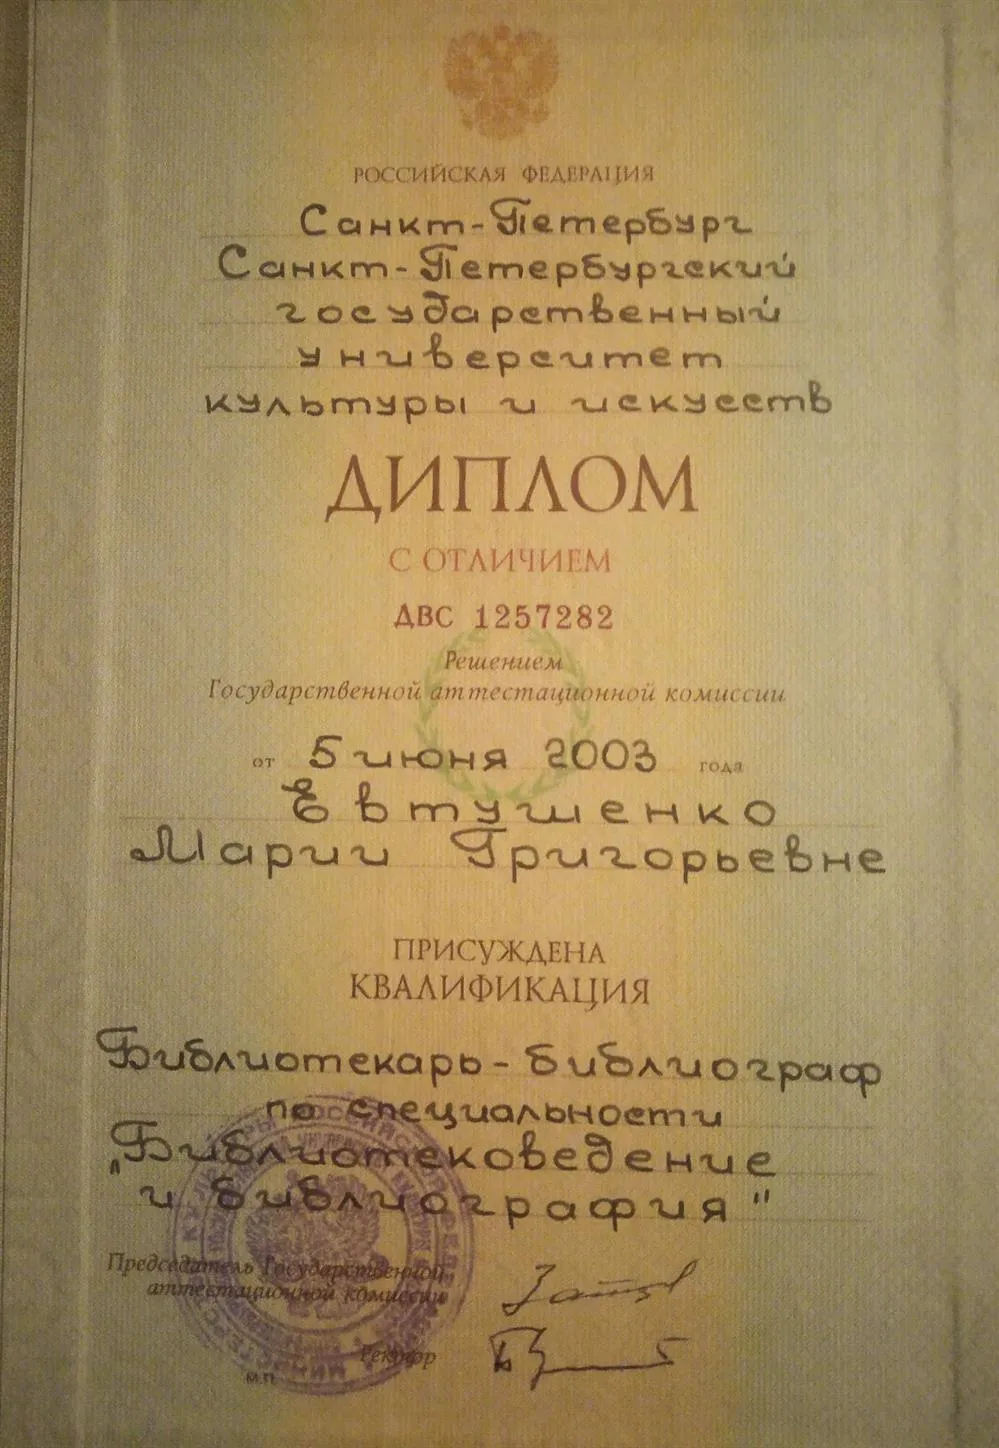 РОССИЙСКАЯ ФЕДЕРАЦИЯ
Санкт-Петербург
Санкт-Петербургский
государственный
университет
культуры и искусств
ДИПЛОМ
С ОТЛИЧИЕМ
ДВС 1257282
Решением
Государственной аттестационной комиссии
от 5 июня 2003 года
Евтушенко
Марии Григорьевне
ПРИСУЖДЕНА
КВАЛИФИКАЦИЯ
Библиотекарь-библиограф
по специальности
„Библиотековедение
и библиография"
Председатель Государственной
аттестационной комиссии
Ректор
М.П.